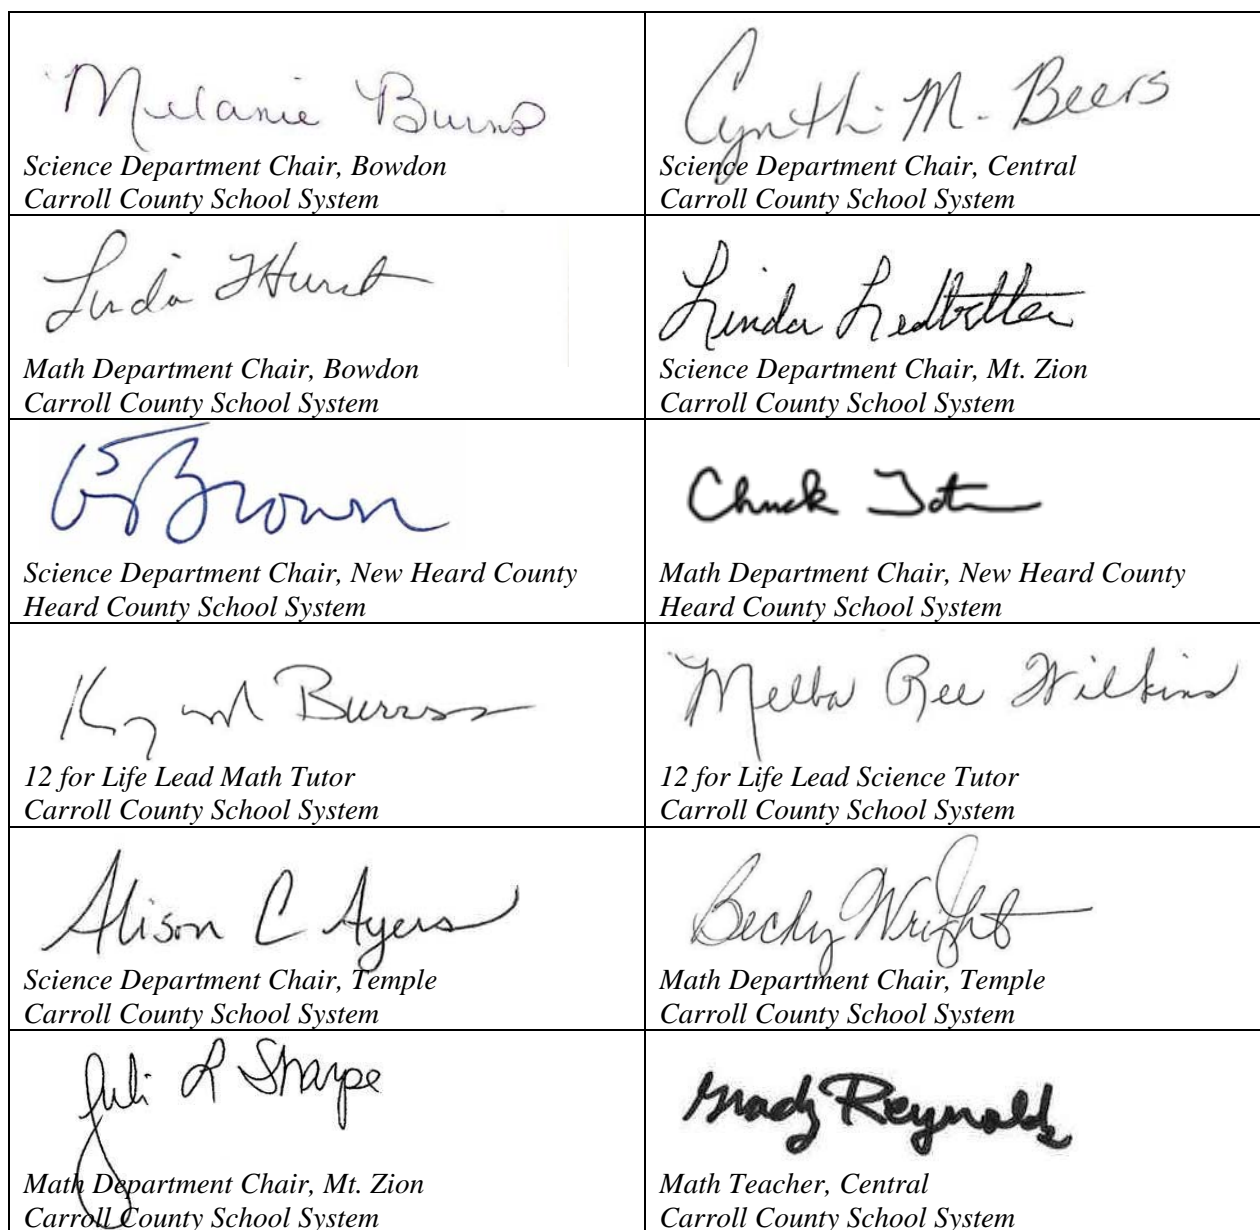 Melanie Burns
Science Department Chair, Bowdon
Carroll County School System
Cynthi M. Beers
Science Department Chair, Central
Carroll County School System
Linda Hurst
Math Department Chair, Bowdon
Carroll County School System
Linda Ledbetter
Science Department Chair, Mt. Zion
Carroll County School System
Brown
Science Department Chair, New Heard County
Heard County School System
Chuck
Math Department Chair, New Heard County
Heard County School System
Burress
12 for Life Lead Math Tutor
Carroll County School System
Melba Ree Wilkins
12 for Life Lead Science Tutor
Carroll County School System
Alison C Ayers
Science Department Chair, Temple
Carroll County School System
Becky Wright
Math Department Chair, Temple
Carroll County School System
Juli R Sharpe
Math Department Chair, Mt. Zion
Carroll County School System
Grady Reynolds
Math Teacher, Central
Carroll County School System